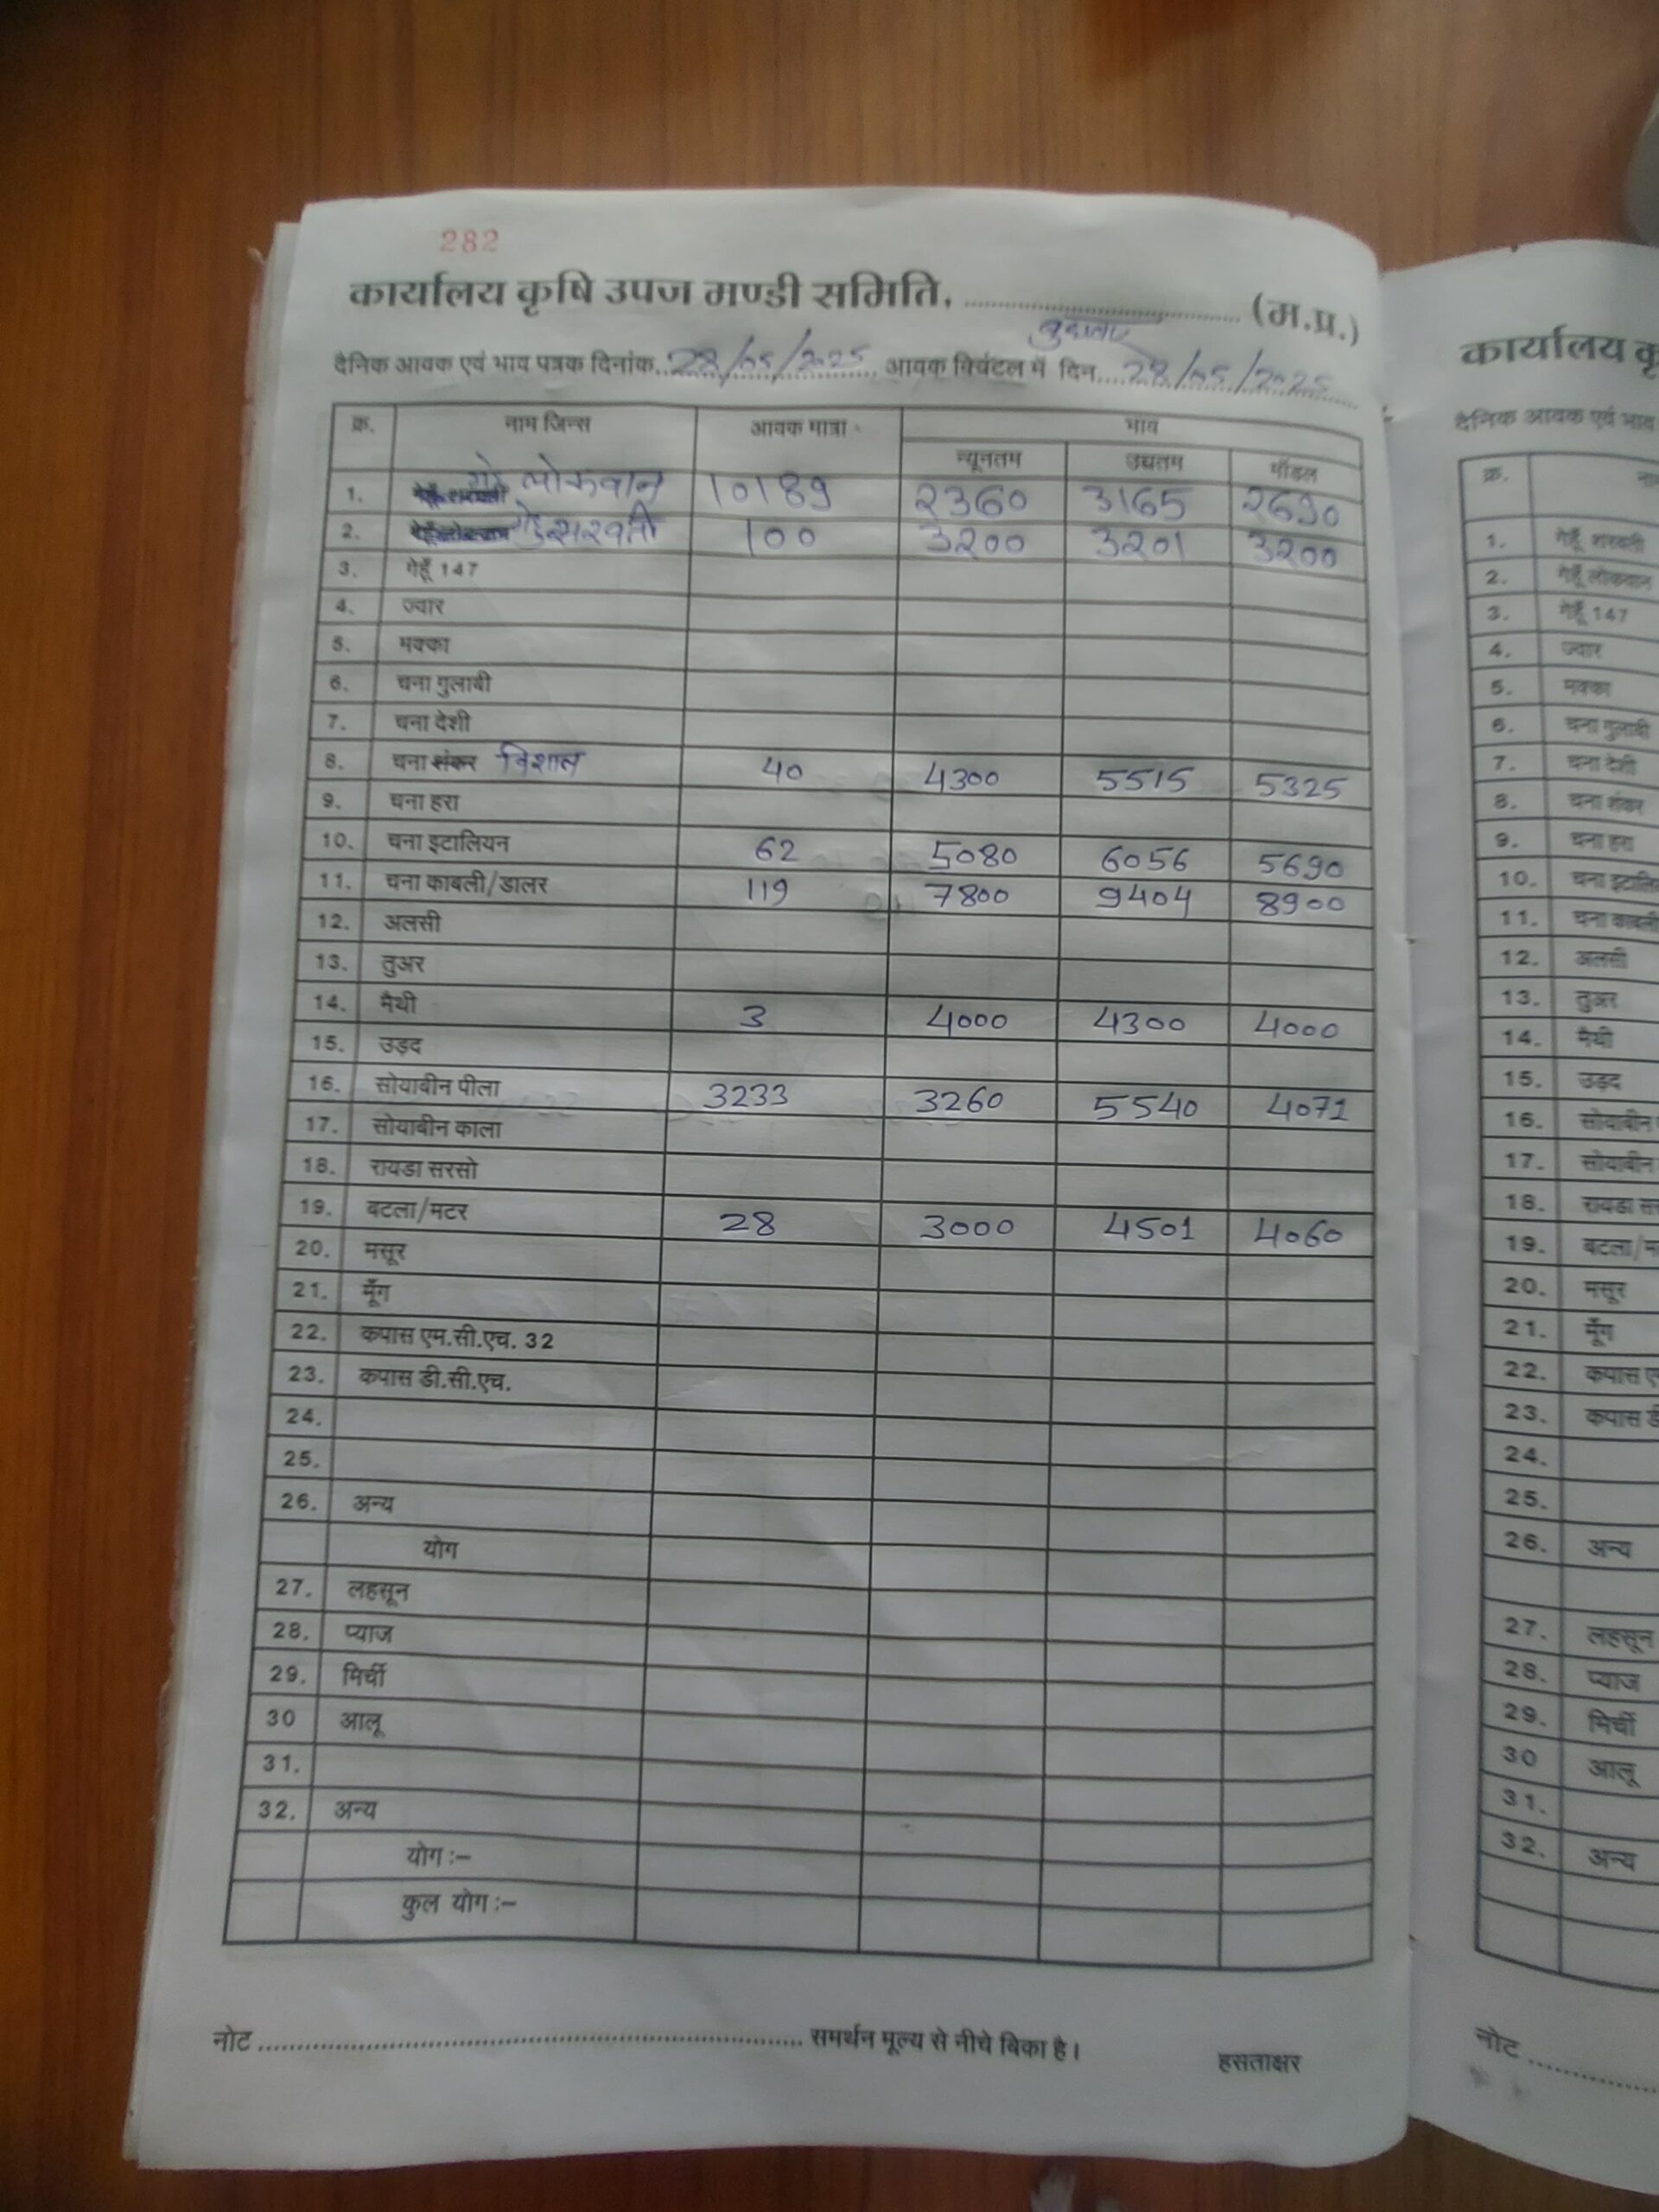 282
कार्यालय कृषि उपज मण्डी समिति, .......... (म.प्र.)
दैनिक आवक एवं भाव पत्रक दिनांक 28/05/2025 आवक क्विंटल में दिन 28/05/2025
क्र. नाम जिन्स आवक मात्रा भाव
न्यूनतम उच्चतम मॉडल
1. लोकवान 10189 2360 3165 2690
2. 100 3200 3201 3200
3. गेहूँ 147
4. ज्वार
5. मक्का
6. चना गुलाबी
7. चना देशी
8. चना शंकर विशाल 40 4300 5515 5325
9. चना हरा
10. चना इटालियन 62 5080 6056 5690
11. चना काबली/डालर 119 7800 9404 8900
12. अलसी
13. तुअर
14. मैथी 3 4000 4300 4000
15. उड़द
16. सोयाबीन पीला 3233 3260 5540 4071
17. सोयाबीन काला
18. रायडा सरसो
19. बटला/मटर 28 3000 4501 4060
20. मसूर
21. मूँग
22. कपास एम.सी.एच. 32
23. कपास डी.सी.एच.
24.
25.
26. अन्य
योग
27. लहसून
28. प्याज
29. मिर्ची
30 आलू
31.
32. अन्य
योग :–
कुल योग :–
नोट .......... समर्थन मूल्य से नीचे बिका है।
हसताक्षर
कार्यालय कृ
दैनिक आवक एवं भाव
क्र.
1. गेहूँ शरबती
2. गेहूँ लोकवान
3. गेहूँ 147
4. ज्वार
5. मक्का
6. चना गुलाबी
7. चना देशी
8. चना शंकर
9. चना हरा
10. चना इटालि
11. चना काबली
12. अलसी
13. तुअर
14. मैथी
15. उड़द
16. सोयाबीन
17. सोयाबीन
18. रायडा
19. बटला/म
20. मसूर
21. मूँग
22. कपास ए
23. कपास ड
24.
25.
26. अन्य
27. लहसून
28. प्याज
29. मिर्ची
30 आलू
31.
32. अन्य
नोट ..........